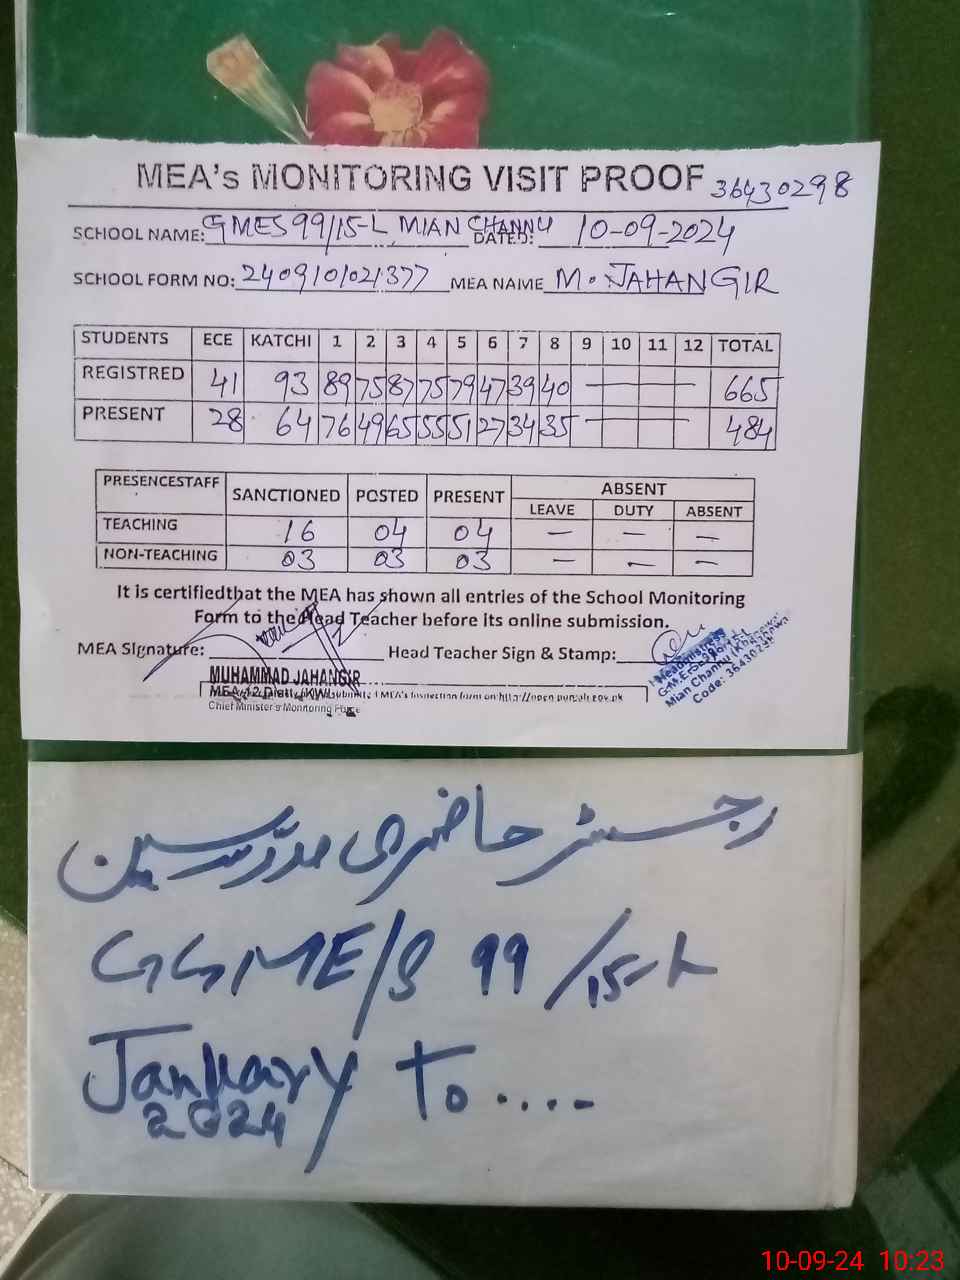 MEA's MONITORING VISIT PROOF 36430298
SCHOOL NAME: GMES 99/15-L MIAN CHANNU DATED: 10-09-2024
SCHOOL FORM NO: 2409101021377 MEA NAME M. JAHANGIR
STUDENTS ECE KATCHI 1 2 3 4 5 6 7 8 9 10 11 12 TOTAL
REGISTRED 41 93 89 75 87 75 79 47 39 40 — — — — 665
PRESENT 28 64 76 49 65 55 51 27 34 35 — — — — 484
PRESENCESTAFF SANCTIONED POSTED PRESENT ABSENT
LEAVE DUTY ABSENT
TEACHING 16 04 04 — — —
NON-TEACHING 03 03 03 — — —
It is certifiedthat the MEA has shown all entries of the School Monitoring
Form to the Head Teacher before its online submission.
MEA Signature: Head Teacher Sign & Stamp:
MUHAMMAD JAHANGIR
MEA-12 Distt. KWL MEA's Inspection form on http://open.punjab.gov.pk
Chief Minister's Monitoring Force
Mian Channu (Khanewal)
Code: 36430298
رجسٹر حاضری مدرسین
GGME/S 99/15-L
January To ....
2024
10-09-24 10:23